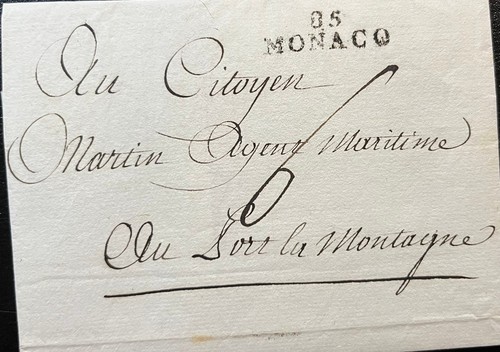 85
MONACO
Au Citoyen
Martin Agent Maritime
6
Au Port la Montagne